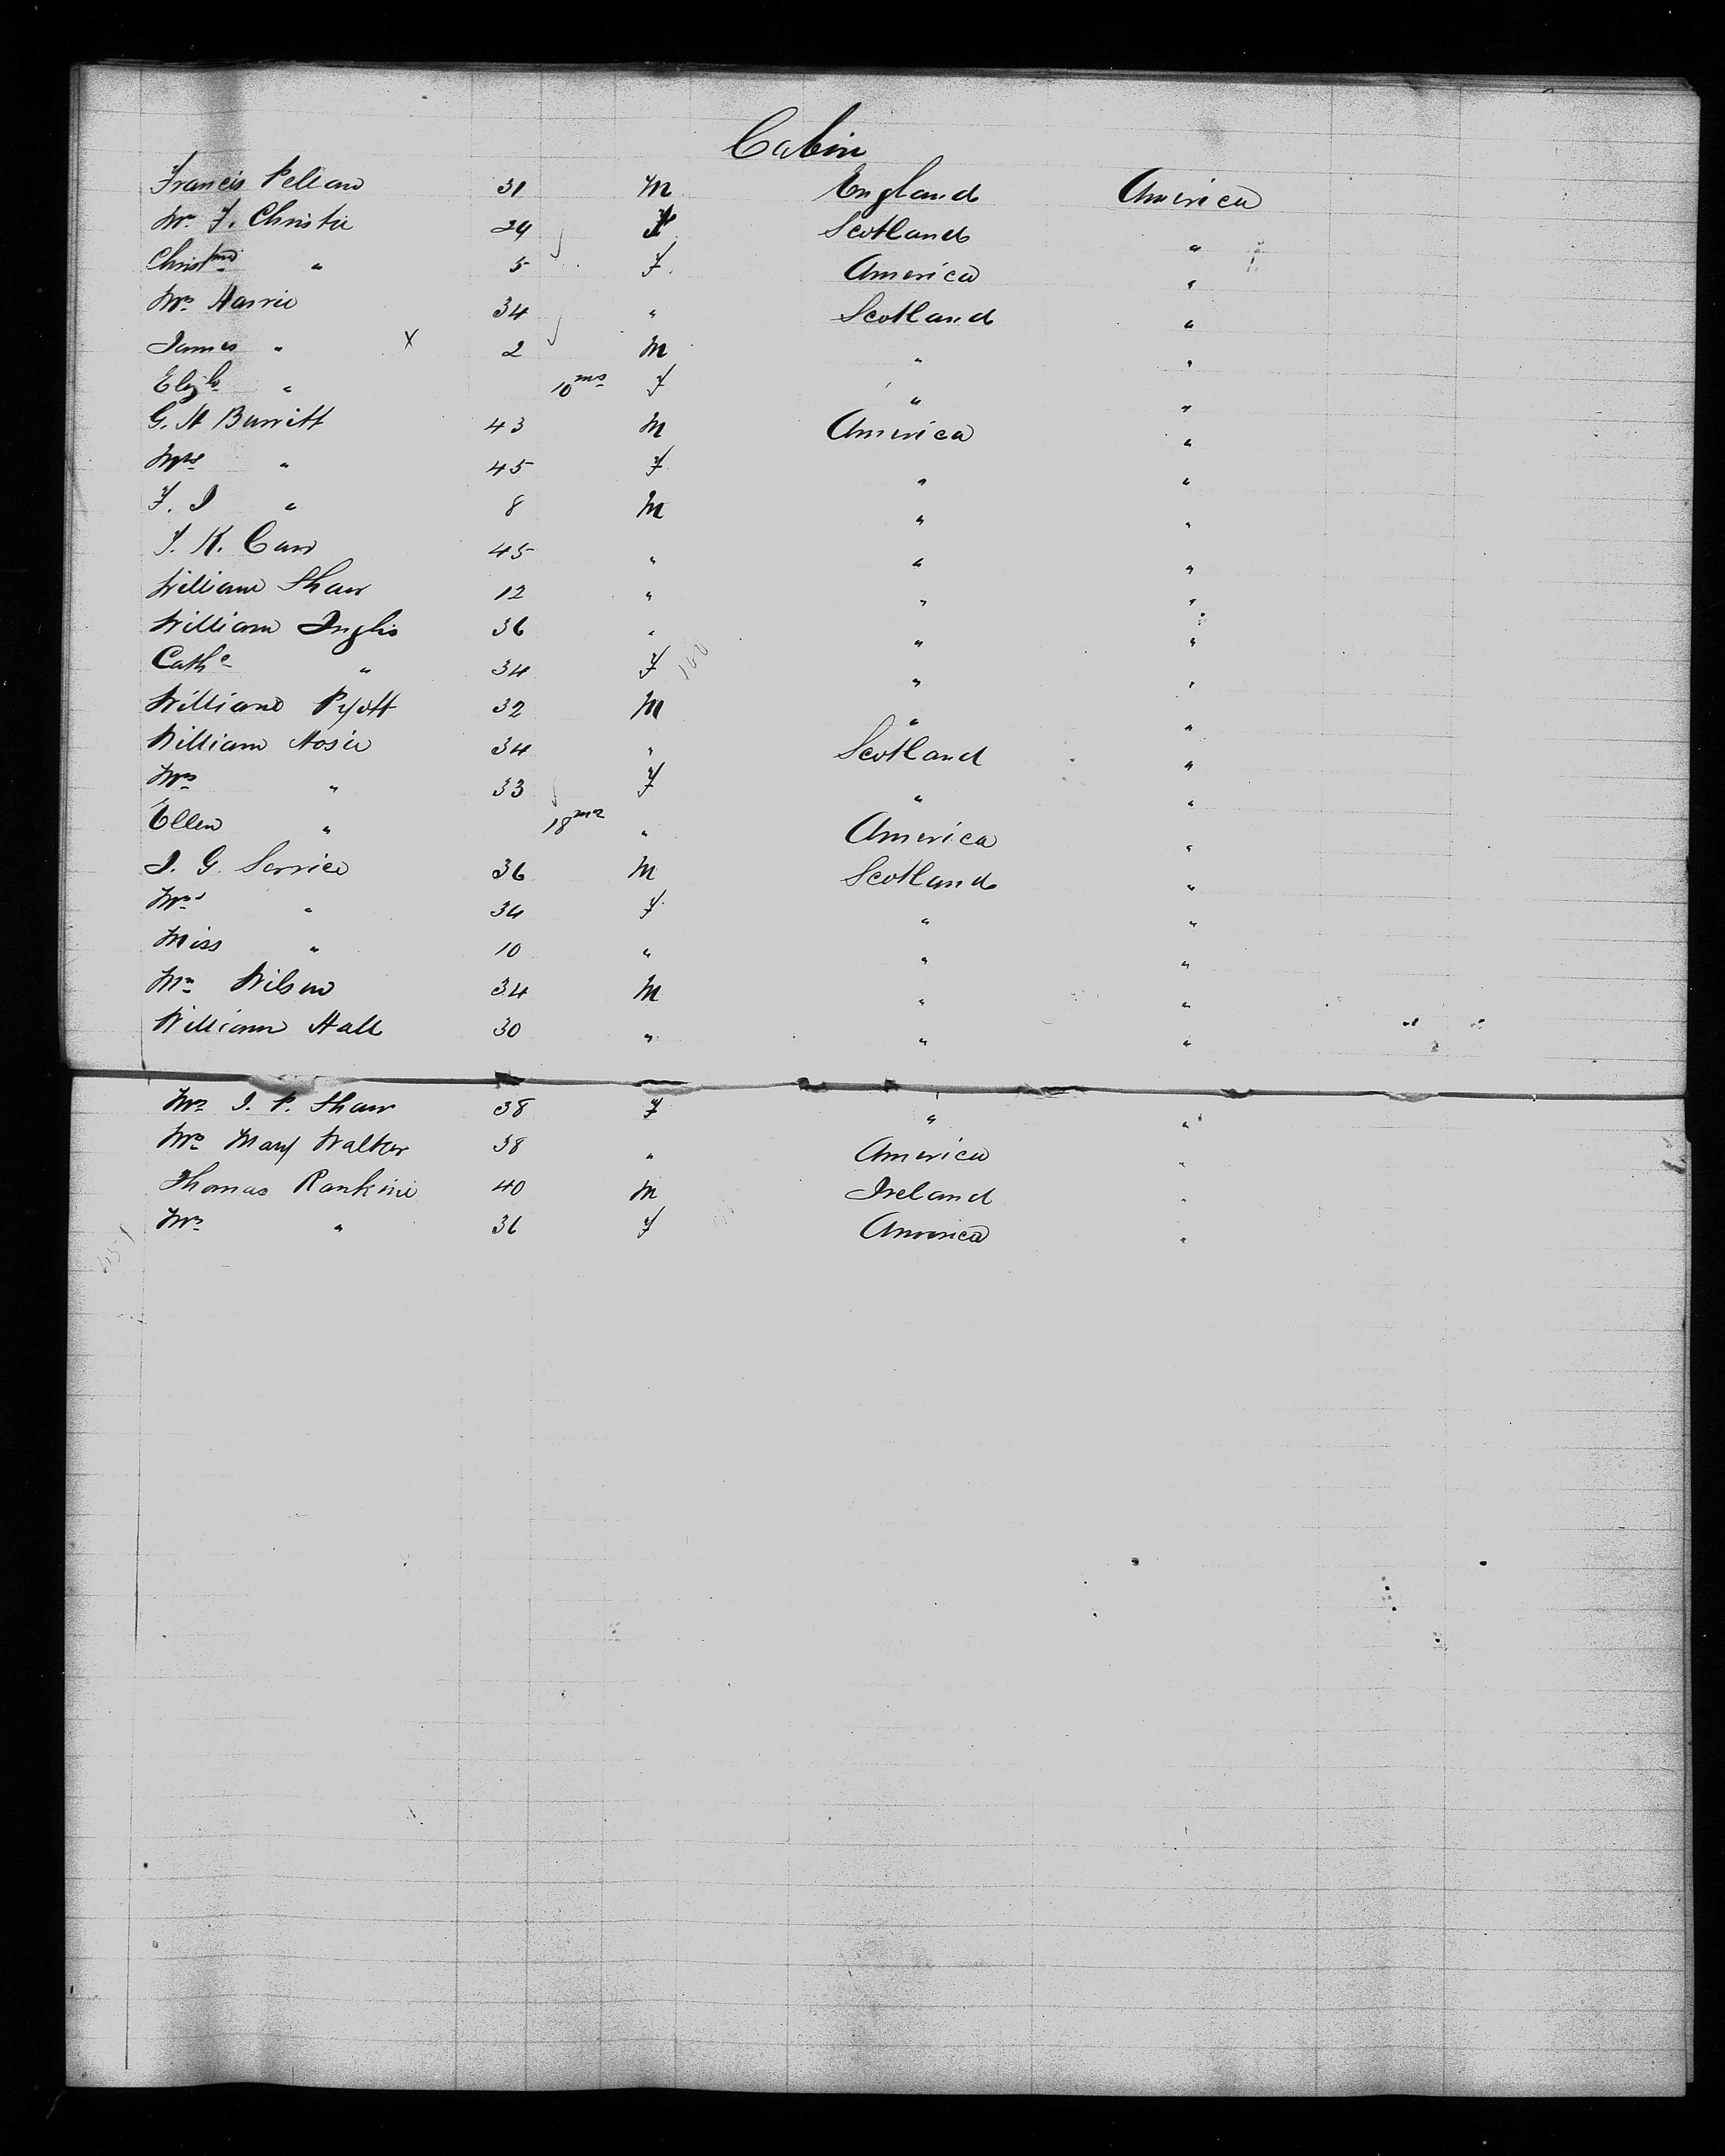 Cabin
Francis Pellow 31 M England America
Mrs F. Christie 29 F Scotland "
Christina " 5 F America "
Mrs Harvie 34 " Scotland "
James " X 2 M " "
Elizh " 10 ms F " "
G. H Burritt 43 M America "
Mrs " 45 F " "
F. I " 8 M " "
J. K. Carr 45 " " "
William Shaw 12 " " "
William Inglis 36 " " "
Cathe " 34 F " "
William Pyott 32 M " "
William Hosie 34 " Scotland "
Mrs " 33 F " "
Ellen " 18 ms " America "
J. G. Service 36 M Scotland "
Mrs " 34 F " "
Miss " 10 " " "
Mr Wilson 34 M " "
William Hall 30 " " "
Mrs J. P. Shaw 38 F " "
Mrs Mary Walker 38 " America "
Thomas Rankine 40 M Ireland "
Mrs " 36 F America "